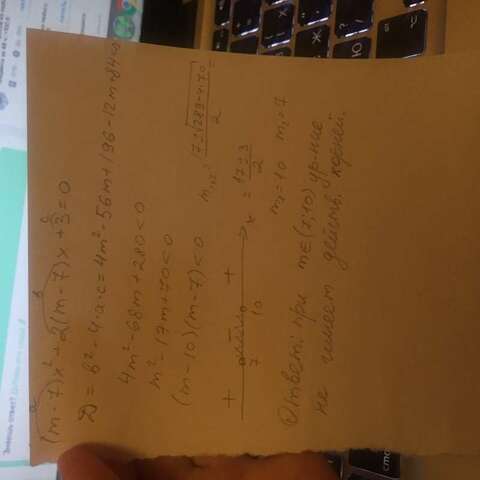 a b c
(m-7)x² + 2(m-7)x + 3 = 0
D = b² - 4·a·c = 4m² - 56m + 196 - 12m + 84 < 0
4m² - 68m + 280 < 0
m² - 17m + 70 < 0
(m-10)(m-7) < 0
m₁,₂ = (17 ± √(289-4·70))/2 =
= (17 ± 3)/2
m₂ = 10 m₁ = 7
+ - + x
7 10
Ответ: при m∈(7;10) ур-ние
не имеет действ. корней.